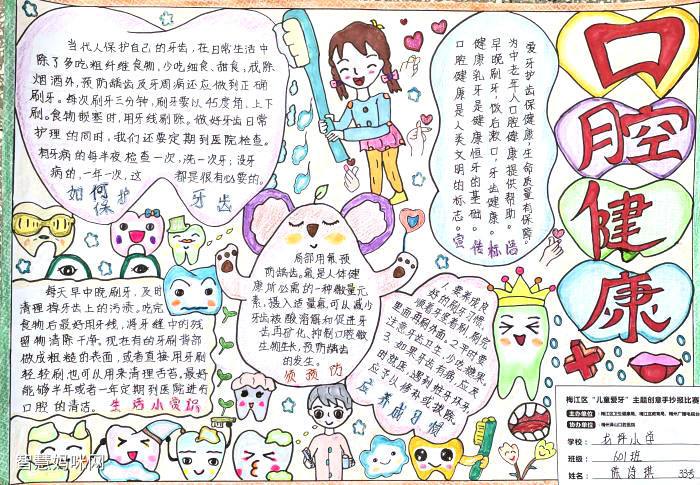 当代人保护自己的牙齿，在日常生活中
除了多吃粗纤维食物，少吃细食、甜食，戒除
烟酒外，预防龋齿及牙周病还应做到正确
刷牙。每次刷牙三分钟，刷牙要以45度角，上下
刷。食物嵌塞时，用牙线剔除。做好牙齿日常
护理的同时，我们还要定期到医院检查。
有牙病的每半夜检查一次，洗一次牙；没牙
病的，一年一次，这 都是很有必要的。
如何保护 牙齿
爱牙护齿保健康，生命质量有保障。
为中老年人口腔健康提供帮助。
早晚刷牙，饭后漱口，牙齿健康。
健康乳牙是健康恒牙的基础。
口腔健康是人类文明的标志。
宣传标语
口腔健康
局部用氟预
防龋齿。氟是人体健
康所必需的一种微量元
素，摄入适量氟可以减少
牙齿被酸溶解和促进牙
齿再矿化、抑制口腔微
生物生长，预防龋齿
的发生。
须预防
每天早中晚刷牙，及时
清理掉牙齿上的污渍。吃完
食物后最好用牙线，将牙缝中的残
留物清除干净。现在有的牙刷背部
做成粗糙的表面，或者直接用牙刷
轻轻刷也可以用来清理舌苔。最好
能够半年或者一年定期到医院进行
口腔的清洁。
生活小常识
要养成良
好的刷牙习惯，
顺着牙缝着刷，刷完
里面再刷外面。2.平时要
注意牙齿卫生，少吃糖果。
3.如果牙齿有病，应及
时就医，遇到蛀牙坏牙，
应予以修补或拔除。
养成习惯
梅江区“儿童爱牙”主题创意手抄报比赛
主办单位
协办单位
学校：
班级：601班
姓名： 33号
智慧妈咪网